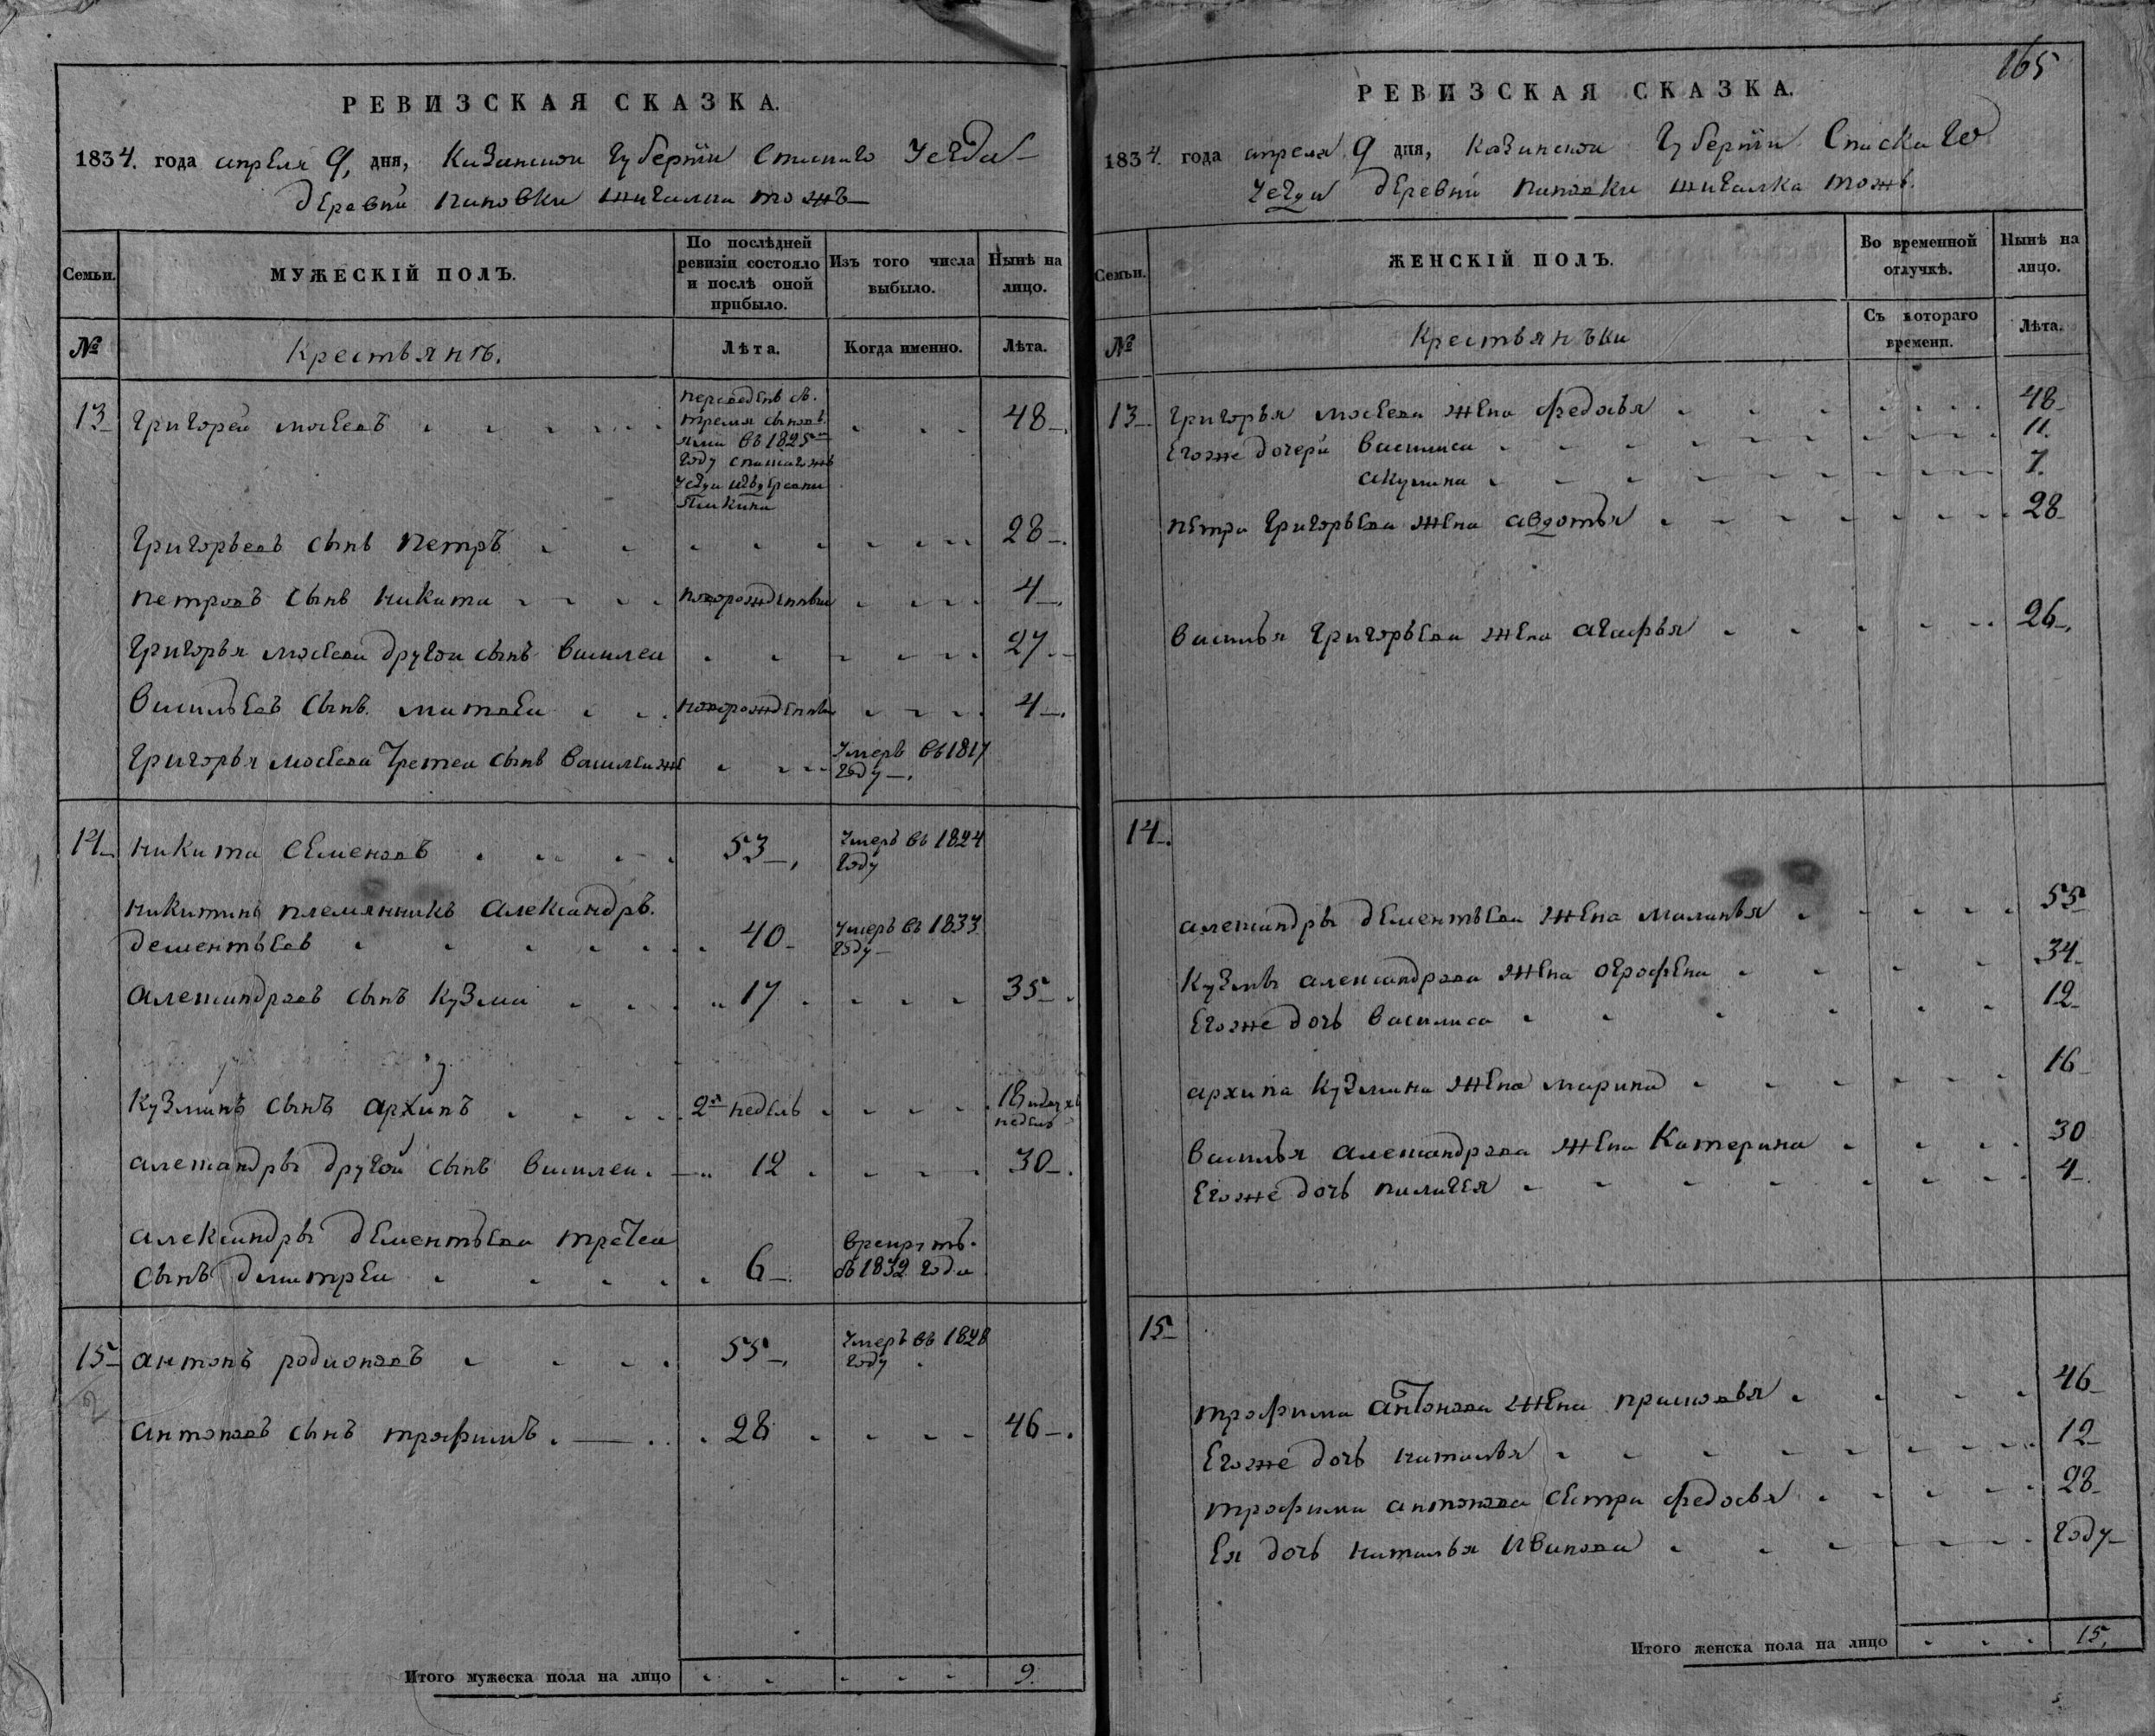 РЕВИЗСКАЯ СКАЗКА.
1834. года апреля 9, дня, Казанской Губернiи Спаского Уезда
деревни пановки жигалка тожъ
Семьи.
МУЖЕСКIЙ ПОЛЪ.
По послѣдней ревизiи состояло и послѣ оной прибыло.
Изъ того числа выбыло.
Нынѣ на лицо.
№
Крестьянъ.
Лѣта.
Когда именно.
Лѣта.
13 григорей мосеевъ
переведенъ съ
тремя сыновь
ями въ 1825м
году
48
григорьевъ сынъ петръ 28
петровъ сынъ никита новорожденныи 4
григорья мосеева другои сынъ василеи 27
васильевъ сынъ матвеи новорожденныи 4
григорья мосеева третеи сынъ василеи же умеръ въ 1817
году
14 никита семеновъ 53 умеръ въ 1824
году
никитинъ племянникъ александръ
дементьевъ 40 умеръ въ 1833
году
александровъ сынъ кузма 17 35
кузминъ сынъ архипъ 2х недель 18 и двухъ
недель
александры другой сынъ василеи 12 30
александры дементьева третеи
сынъ дмитреи 6 врекрутъ
съ 1832 года
15 антонъ родионовъ 55 умеръ въ 1828
году
антоновъ сынъ трофимъ 28 46
Итого мужеска пола на лицо 9.
165
РЕВИЗСКАЯ СКАЗКА.
1834. года апреля 9 дня, Казанской Губернiи Спаскаго
уезда деревни пановки жигалка тожъ.
Семьи.
ЖЕНСКIЙ ПОЛЪ.
Во временной отлучкѣ.
Нынѣ на лицо.
№
Крестьянъки
Съ котораго времени.
Лѣта.
13 григорья мосеева жена федосья 48
Егоже дочери василиса 11.
акулина 7.
петра григорьева жена авдотья 28
василья григорьева жена агафья 26
14.
александры дементьева жена маланья 55
кузмы александрова жена ографена 34
Егоже дочь василиса 12
архипа кузмина жена марина 16
василья александрова жена катерина 30
Егоже дочь пилагея 4
15
трофима антонова жена прасковья 46
Егоже дочь наталья 12
трофима антонова сестра федосья 28
Ея дочь наталья иванова году
Итого женска пола на лицо 15.